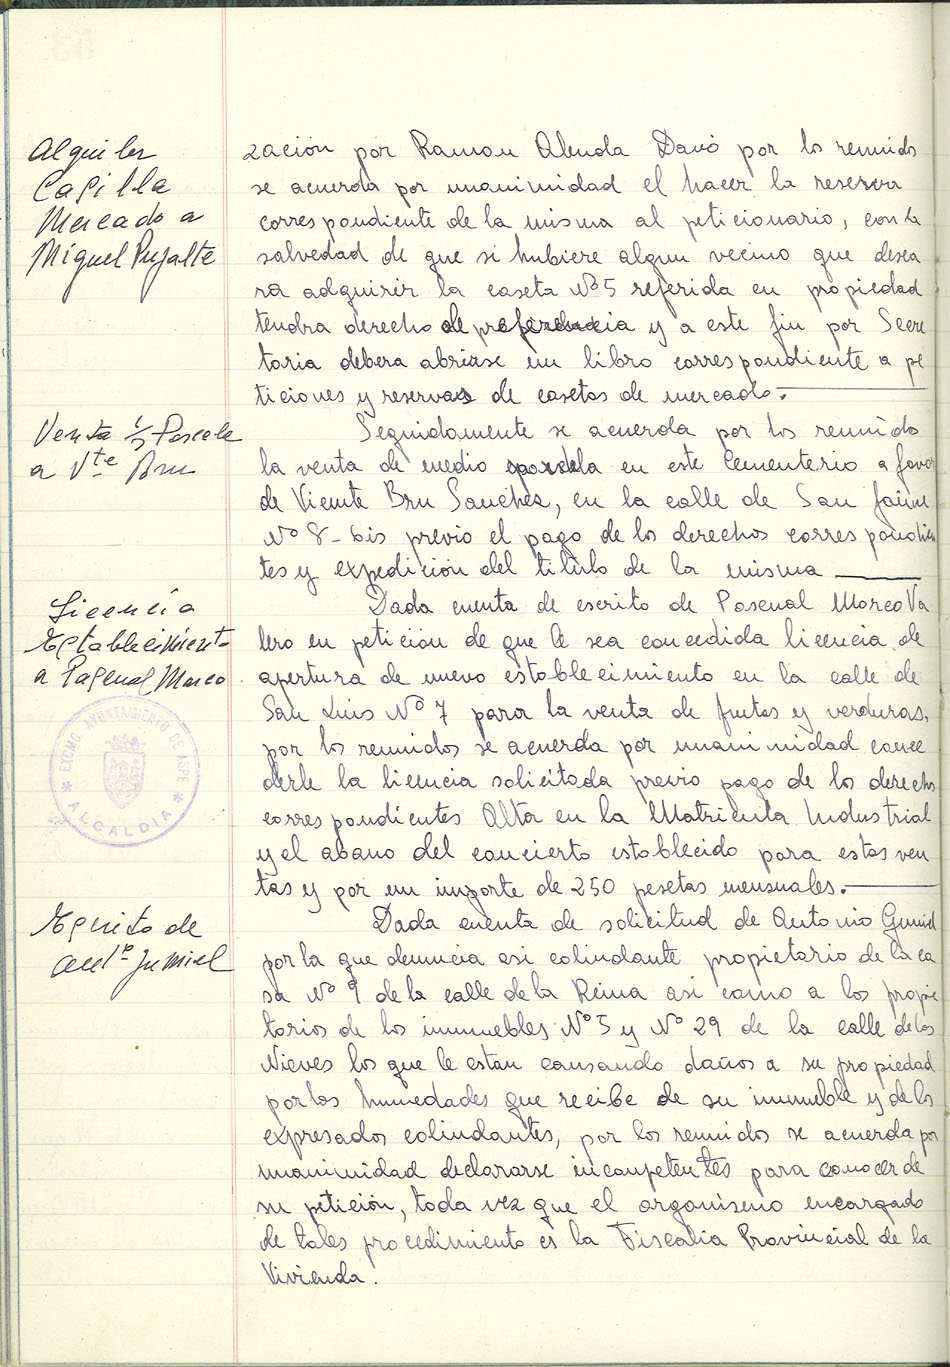 Alquiler
Casilla
Mercado a
Miguel Pujalte
zación por Ramon Alenda Davó por los reunidos
se acuerda por unanimidad el hacer la reserva
correspondiente de la misma al peticionario, con la
salvedad de que si hubiere algun vecino que desea
ra adquirir la caseta Nº 5 referida en propiedad
tendra derecho de preferencia y a este fin por Secre
taria debera abrirse un libro correspondiente a pe
ticiones y reservas de casetas de mercado.
Venta ½ Parcela
a Vte Bru
Seguidamente se acuerda por los reunidos
la venta de medio parcela en este Cementerio a favor
de Vicente Bru Sanchez, en la calle de San Jaime
Nº 8-bis previo el pago de los derechos correspondien
tes y expedición del titulo de la misma
Licencia
Establecimiento
a Pascual Marco
Dada cuenta de escrito de Pascual Marco Va
lero en petición de que le sea concedida licencia de
apertura de nuevo establecimiento en la calle de
San Luis Nº 7 para la venta de frutas y verduras,
por los reunidos se acuerda por unanimidad conce
derle la licencia solicitada previo pago de los derechos
correspondientes Alta en la Matricula Industrial
y el abano del concierto establecido para estas ven
tas y por un importe de 250 pesetas mensuales.
EXCMO. AYUNTAMIENTO DE ASPE
* ALCALDIA *
Escrito de
Antº Jumiel
Dada cuenta de solicitud de Antonio Gumiel
por la que denuncia asi colindante propietario de la ca
sa Nº 9 de la calle de la Reina asi como a los propie
tarios de los inmuebles Nº 5 y Nº 29 de la calle de las
Nieves los que le estan causando daños a su propiedad
por las humedades que recibe de su inmueble y de los
expresados colindantes, por los reunidos se acuerda por
unanimidad declararse incompetentes para conocer de
su petición, toda vez que el organismo encargado
de tales procedimiento es la Fiscalia Provincial de la
Vivienda.